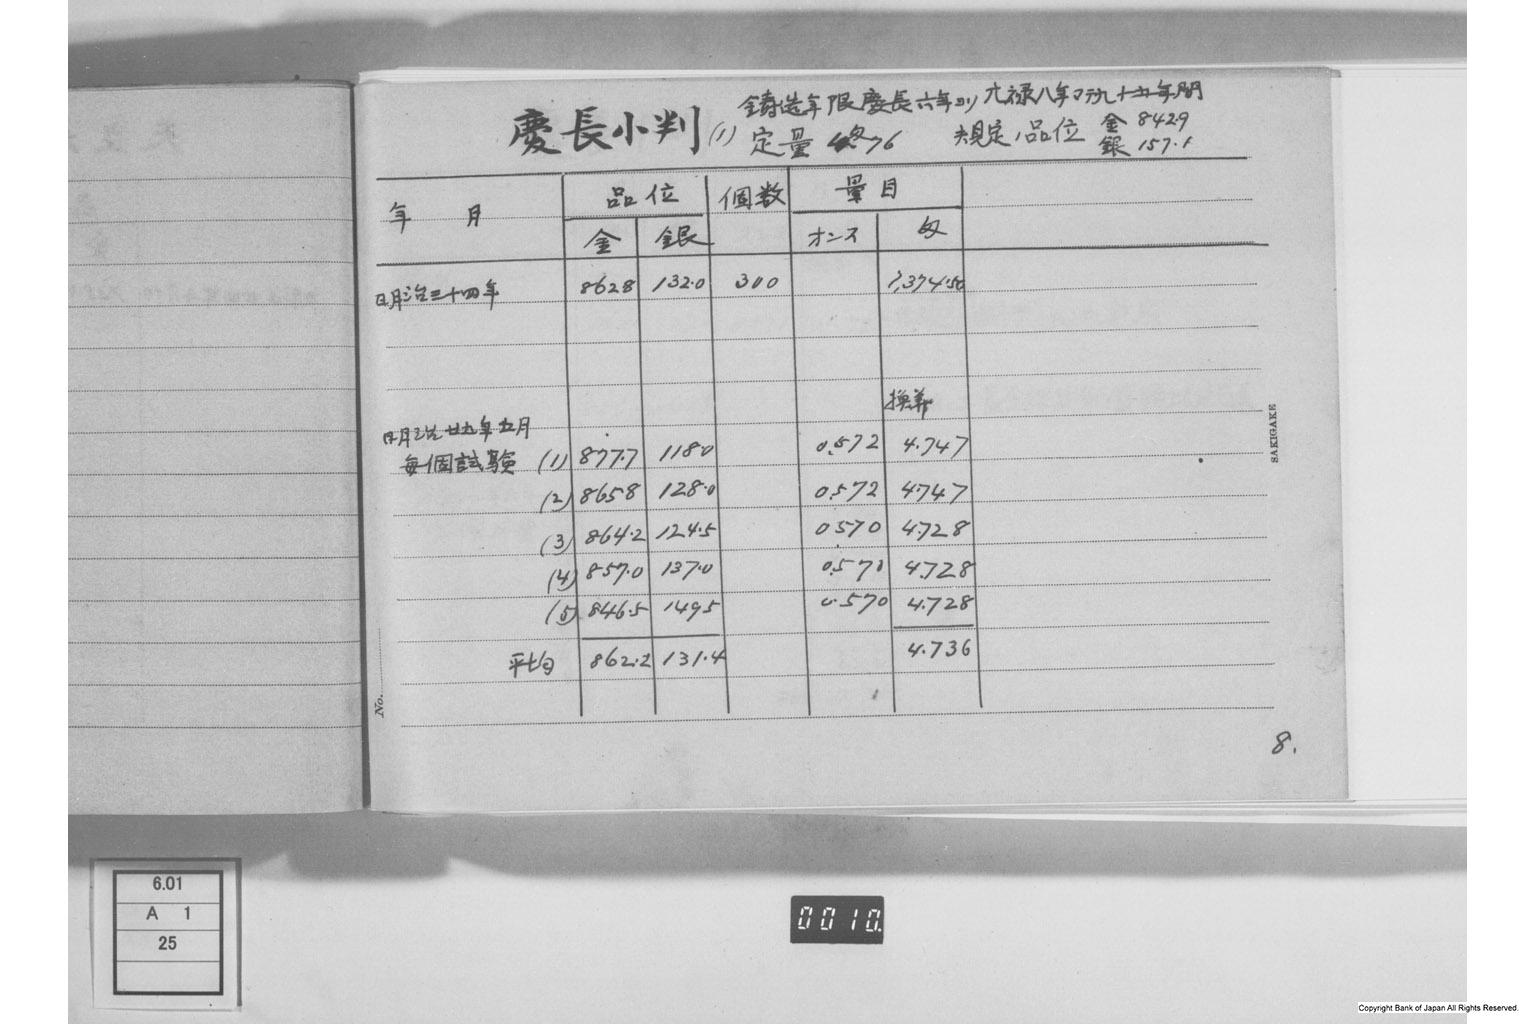 慶長小判 (1)
鋳造年限慶長六年ヨリ元禄八年マデ九十五年間
定量 4匁76 規定ノ品位 金 842.9
銀 157.1
年 月 品位 個数 量目
金 銀 オンス 匁
明治三十四年 862.8 132.0 300 1,374.50
換算
明治廿九年五月
毎個試験 (1) 877.7 118.0 0.572 4.747
(2) 865.8 128.0 0.572 4.747
(3) 864.2 124.5 0.570 4.728
(4) 857.0 137.0 0.570 4.728
(5) 846.5 149.5 0.570 4.728
平均 862.2 131.4 4.736
No.
SAKIGAKE
8.
6.01
A 1
25
0010.
Copyright Bank of Japan All Rights Reserved.